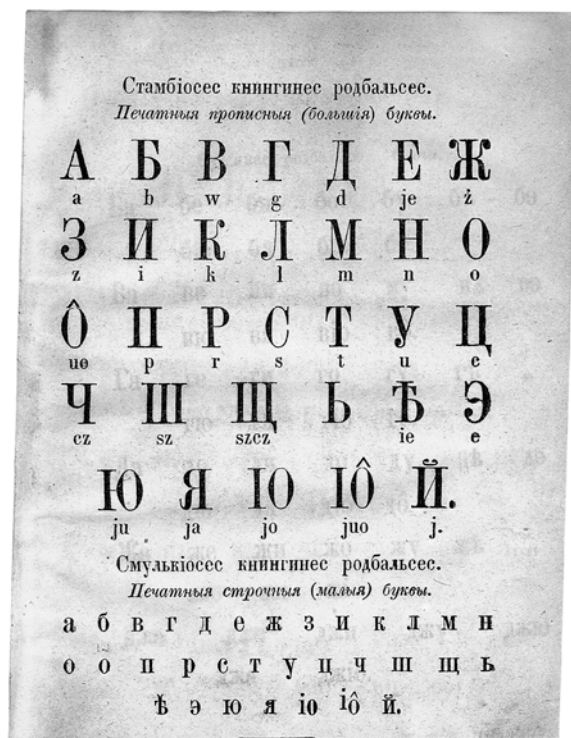 Стамбіосес кнингинес родбальсес.
Печатныя прописныя (большія) буквы.
А Б В Г Д Е Ж
a b w g d je ż
З И К Л М Н О
z i k l m n o
О̂ П Р С Т У Ц
uo p r s t u c
Ч Ш Щ Ь Ѣ Э
cz sz szcz ie e
Ю Я ІО ІО̂ Й.
ju ja jo juo j.
Смулькіосес кнингинес родбальсес.
Печатныя строчныя (малыя) буквы.
а б в г д е ж з и к л м н
о о п р с т у ц ч ш щ ь
ѣ э ю я іо іо̂ й.